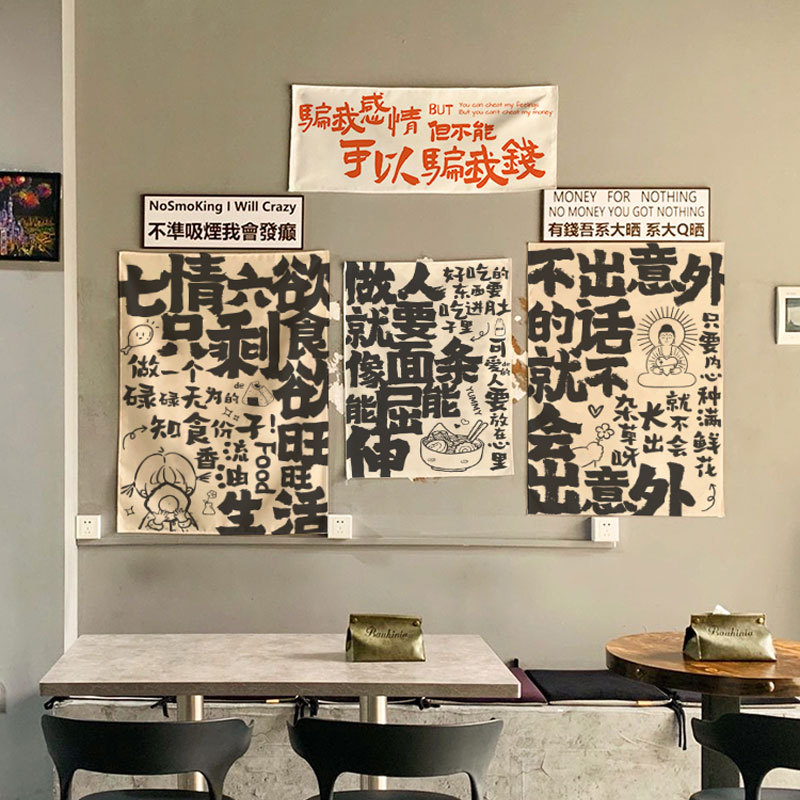 騙我感情 BUT You can cheat my feelings
But you can't cheat my money
但不能
可以騙我錢
NoSmoKing I Will Crazy
不準吸煙我會發癲
MONEY FOR NOTHING
NO MONEY YOU GOT NOTHING
有錢吾系大晒 系大Q晒
七情六欲
只剩食欲
做一个
de
碌碌无为的
知食份子
香流油
! Food
旺旺
生活
做人
就要
像面条
能屈能
伸
好吃的
东西要
吃进肚
子里
可爱的人要放在心里
YUMMY
不出意外
的话
就不
会
出意外
只要内心种满鲜花
就不会
长出
杂草呀
Bauhinia
Bauhinia